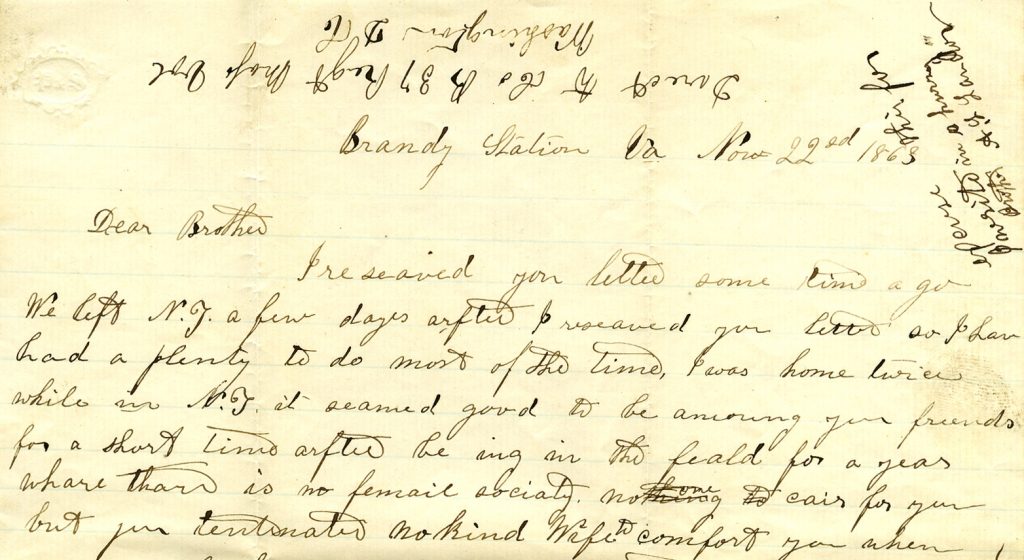 Direct to Co K 37 Regt Mass Vol
Washington D C
Brandy Station Va Nov 22nd 1863
Dear Brother
I reseaved you letter some time a go
We left N.Y. a few days arfter I reseaved you letter so I hav
had a plenty to do most of the time, I was home twice
while in N.Y. it seamed good to be amoung you friends
for a short time arfter be ing in the feald for a year
whare thare is no femail sociaty. no one to cair for you
but you tentmates no kind Wife to comfort you when